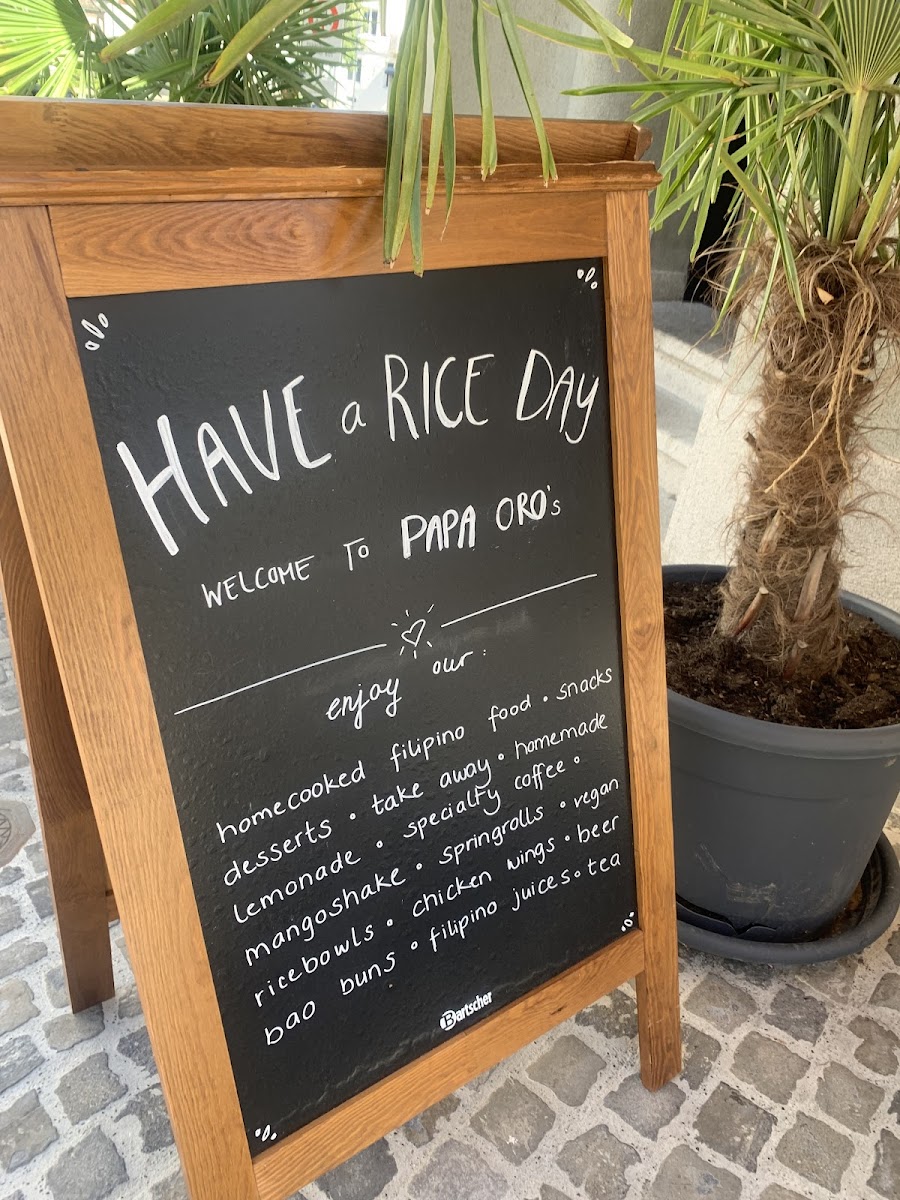 HAVE a RICE DAY
WELCOME TO PAPA ORO's
enjoy our:
homecooked filipino food • snacks
desserts • take away • homemade
lemonade • specialty coffee •
mangoshake • springrolls • vegan
ricebowls • chicken wings • beer
bao buns • filipino juices • tea
Bartscher